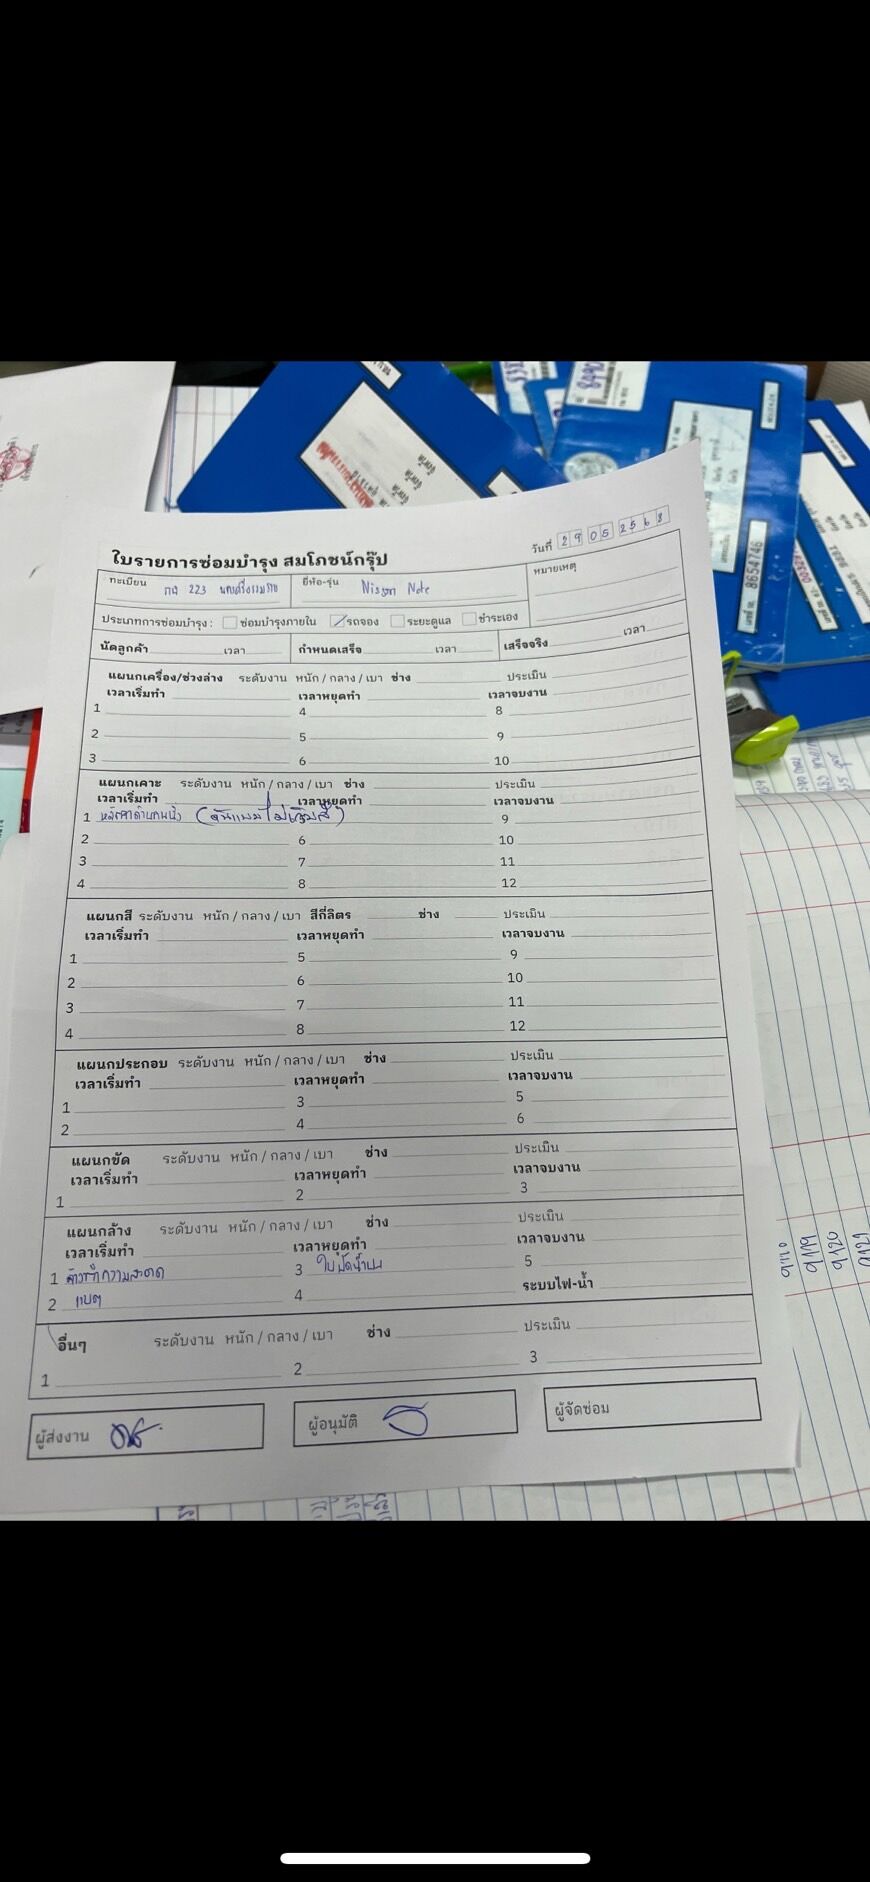 ใบรายการซ่อมบำรุง สมโภชน์กรุ๊ป
วันที่ 29052568
ทะเบียน 223 นครศรีธรรมราช ยี่ห้อ-รุ่น Nissan Note หมายเหตุ
ประเภทการซ่อมบำรุง : ซ่อมบำรุงภายใน รถจอง ระยะดูแล ชำระเอง
นัดลูกค้า เวลา กำหนดเสร็จ เวลา เสร็จจริง เวลา
แผนกเครื่อง/ช่วงล่าง ระดับงาน หนัก / กลาง / เบา ช่าง ประเมิน
เวลาเริ่มทำ เวลาหยุดทำ เวลาจบงาน
1 4 8
2 5 9
3 6 10
แผนกเคาะ ระดับงาน หนัก / กลาง / เบา ช่าง ประเมิน
เวลาเริ่มทำ เวลาหยุดทำ เวลาจบงาน
1 9
2 6 10
3 7 11
4 8 12
แผนกสี ระดับงาน หนัก / กลาง / เบา สีกี่ลิตร ช่าง ประเมิน
เวลาเริ่มทำ เวลาหยุดทำ เวลาจบงาน
1 5 9
2 6 10
3 7 11
4 8 12
แผนกประกอบ ระดับงาน หนัก / กลาง / เบา ช่าง ประเมิน
เวลาเริ่มทำ เวลาหยุดทำ เวลาจบงาน
1 3 5
2 4 6
แผนกขัด ระดับงาน หนัก / กลาง / เบา ช่าง ประเมิน
เวลาเริ่มทำ เวลาหยุดทำ เวลาจบงาน
1 2 3
แผนกล้าง ระดับงาน หนัก / กลาง / เบา ช่าง ประเมิน
เวลาเริ่มทำ เวลาหยุดทำ เวลาจบงาน
1 ล้างทำความสะอาด 3 ใบปัดน้ำฝน 5
2 แบต 4 ระบบไฟ-น้ำ
อื่นๆ ระดับงาน หนัก / กลาง / เบา ช่าง ประเมิน
1 2 3
ผู้ส่งงาน ผู้อนุมัติ ผู้จัดซ่อม
8654746
9119
9120
9121